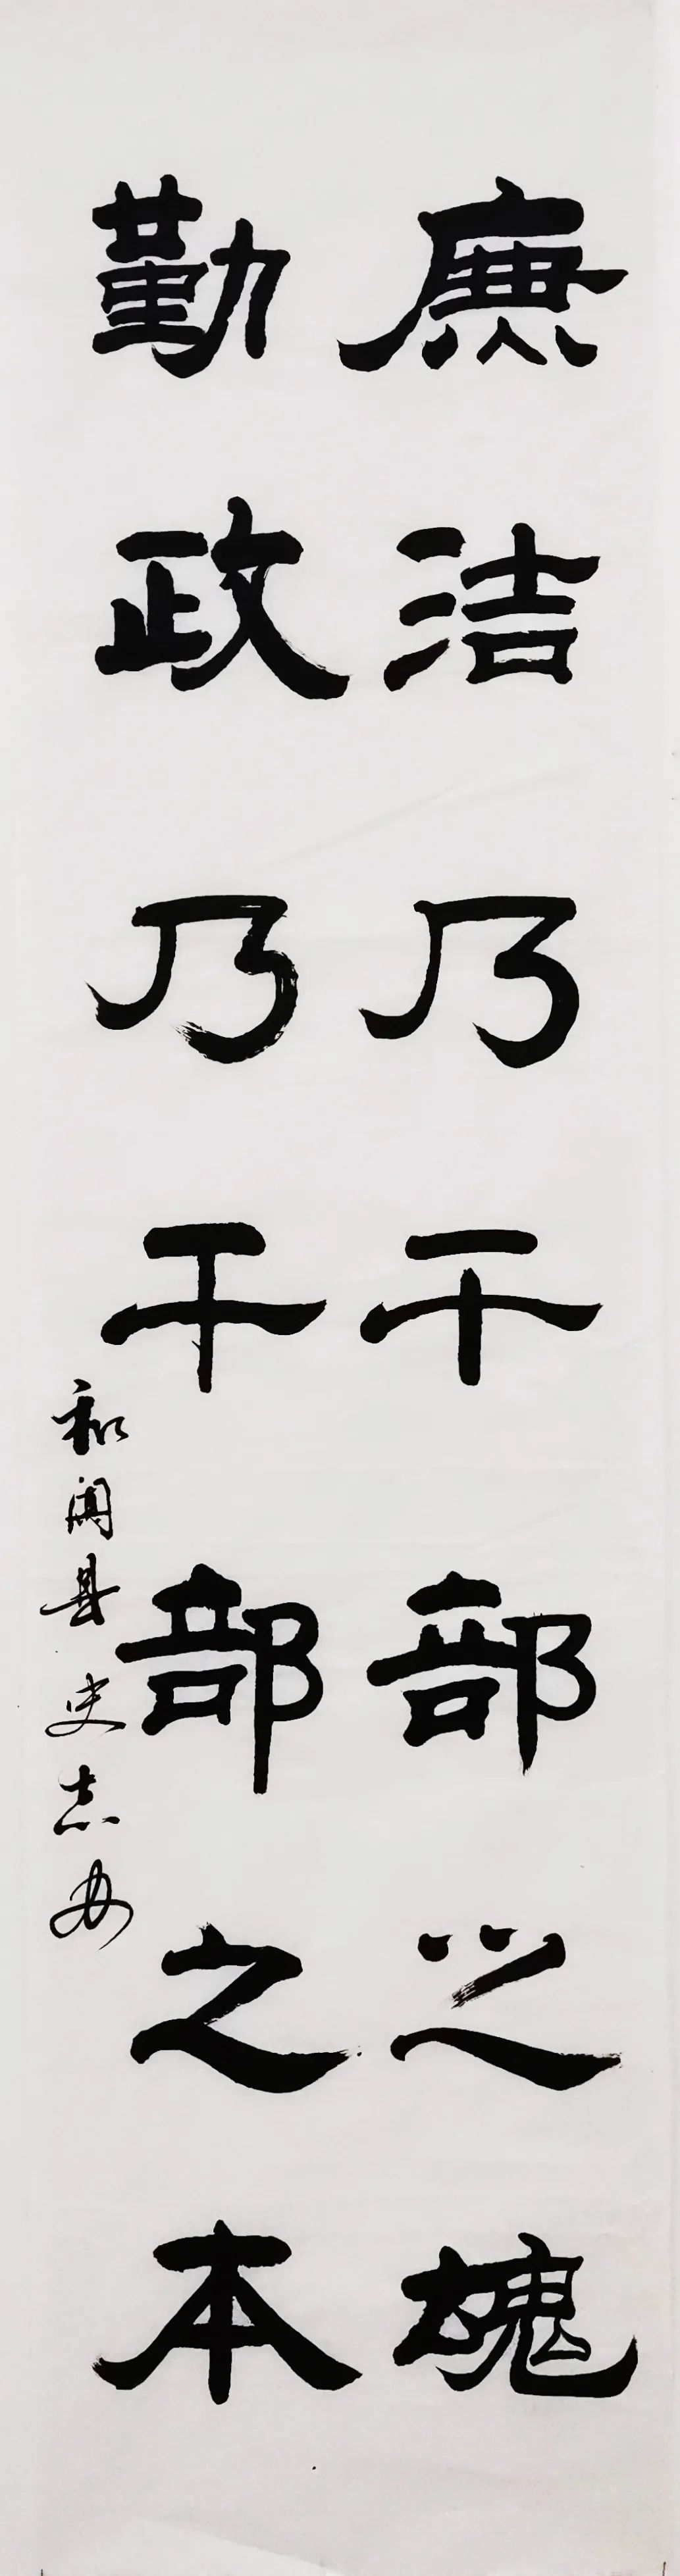 廉洁乃干部之魂
勤政乃干部之本
和阗县 史志